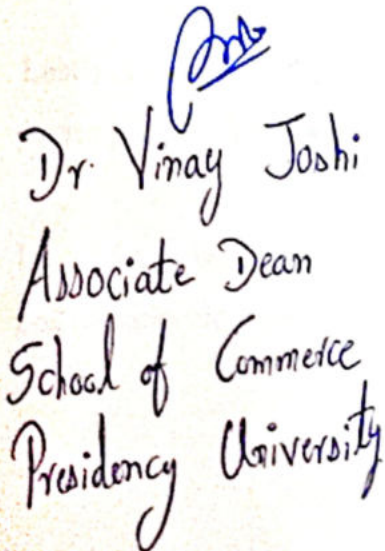 Dr. Vinay Joshi
Associate Dean
School of Commerce
Presidency University